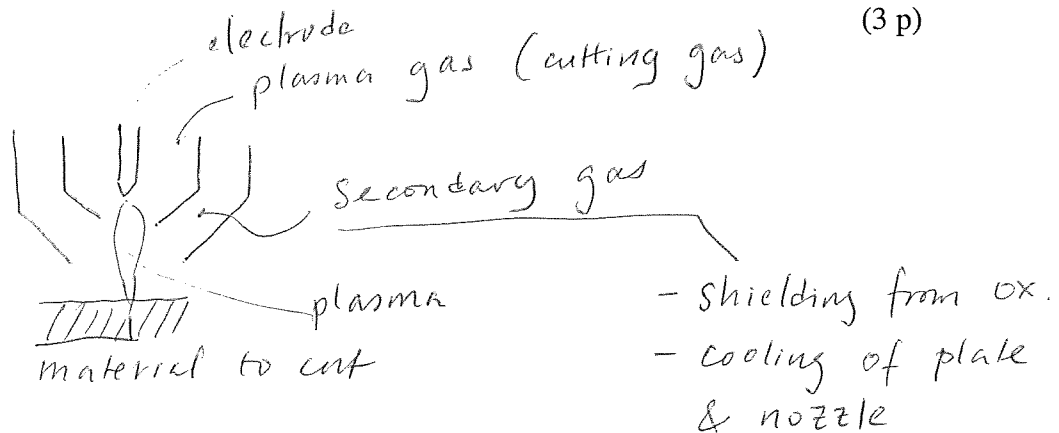 (3 p)
electrode
plasma gas (cutting gas)
Secondary gas
plasma
material to cut
- shielding from ox.
- cooling of plate
& nozzle